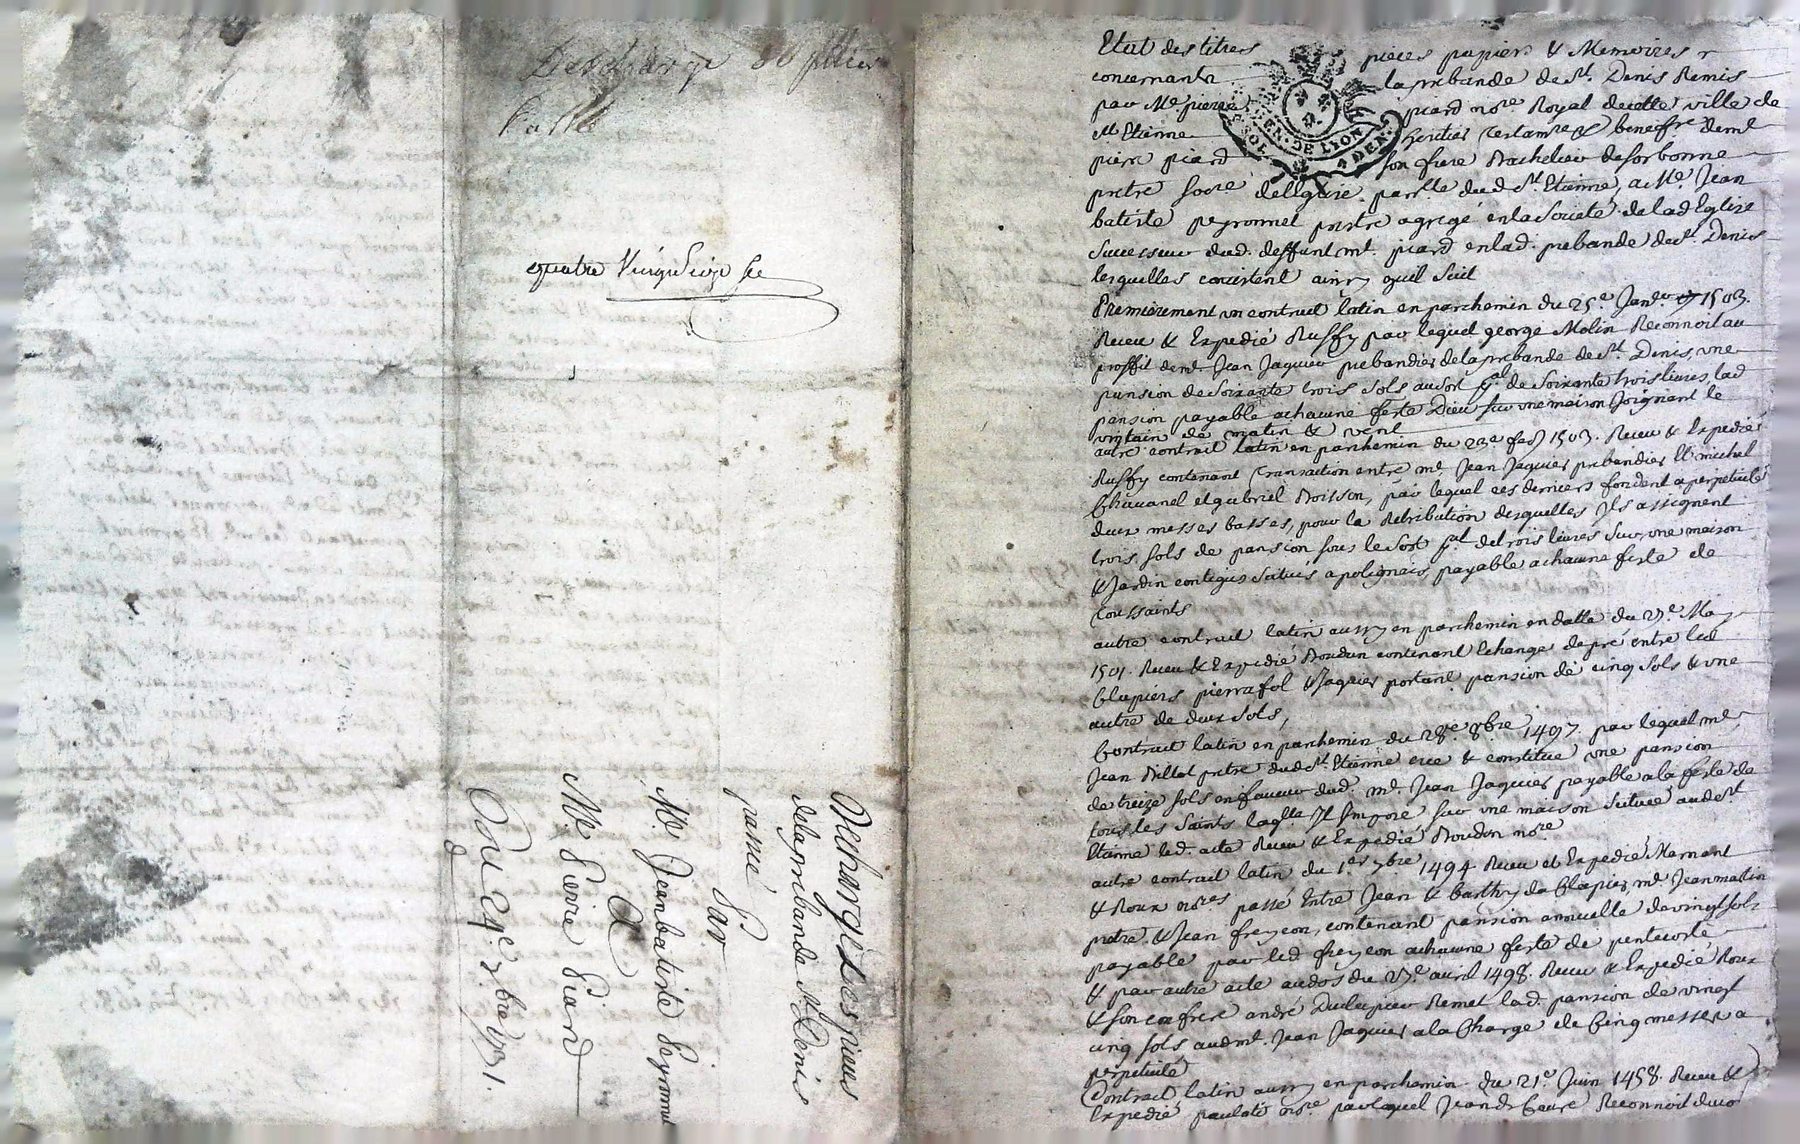 Descharge de pieces
quatre Vingt Seize
Decharge des pieces
de la prebande St Denis
passé Par
Mr. Jeanbatiste Peyronnel
A
Mr Pierre Piard
Du 24e 7bre 1731.
Etat des titres pieces papiers & Memoires
concernants la prebande de St. Denis Remis
par Me pierre piard nore Royal de cette ville de
St Etienne heritier testamre & beneffre de mr
pierre piard son frere Bachelier de sorbonne
pretre socre de leglise parlle dud St Etienne, a Me. Jean
batiste peyronnel pretre agregé en la societé de lad Eglise
successeur dud. deffunt mr. piard en lad. prebande de St. Denis
lesquelles consistent ainsy quil suit
Premierement un contrait latin en parchemin du 25e Janvr 1503.
Receu & Expedié Ruffy par lequel george Molin Reconnoit au
proffit de mr. Jean Jaquier prebandier de la prebande de St. Denis, une
pansion de soixante trois sols au sort pal de soixante trois livres, lad
pansion payable a chacune feste Dieu sur une maison Joignant le
vintain de matin & vent
autre contrait latin en parchemin du 23e feb 1503. Receu & Expedié
Ruffy contenant transaction entre mr Jean Jaquier prebandier & michel
Chavanel et gabriel Boisson, par lequel ces derniers fondent a perpetuité
deux messes basses, pour la Retribution desquelles Ils assignent
trois sols de pansion sous le sort pal de trois livres sur une maison
& Jardin contigus situés a polignais, payable a chacune feste de
toussaints
autre contrait latin aussy en parchemin en datte du May
1501. Receu & Expedié Boudin contenant Echange de pré entre led
Clapiers pierrafol & Jaquier portant pansion de cinq sols & une
autre de deux sols,
Contrait latin en parchemin du 28e. 8bre 1497. par lequel mr
Jean Billot pretre dud St. Etienne cree & constitue une pansion
de treize sols en faveur dud. mr. Jean Jaquier payable a la feste de
tous les Saints laqlle Il Impose sur une maison scituée aud St
Etienne led. acte Receu & Expedié Boudin nore
autre contrait latin du 1er 7bre 1494. Receu et Expedié Mornant
& Roux nores passé Entre Jean & Barthy da Clapier, mr Jean martin
pretre & Jean freycon, contenant pansion annuelle de vingt sols
payable par led freycon a chacune feste de pentecoste
& par autre acte au dos du avril 1498. Receu & Expedié Roux
& son confrere andré Dulupier Remet lad. pansion de vingt
cinq sols aud mr. Jean Jaquier a la Charge de Cinq messes a
perpetuité
Contrait latin aussy en parchemin du 21e. Juin 1458. Receu &
Expedié nore par lequel Jean Reconnoit